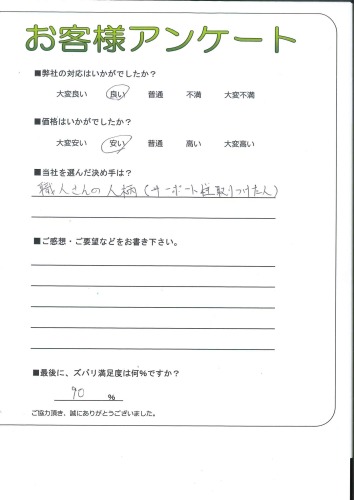 お客様アンケート
■弊社の対応はいかがでしたか？
大変良い 良い 普通 不満 大変不満
■価格はいかがでしたか？
大変安い 安い 普通 高い 大変高い
■当社を選んだ決め手は？
職人さんの人柄（サーポート様取りつけた人）
■ご感想・ご要望などをお書き下さい。
■最後に、ズバリ満足度は何%ですか？
90 %
ご協力頂き、誠にありがとうございました。